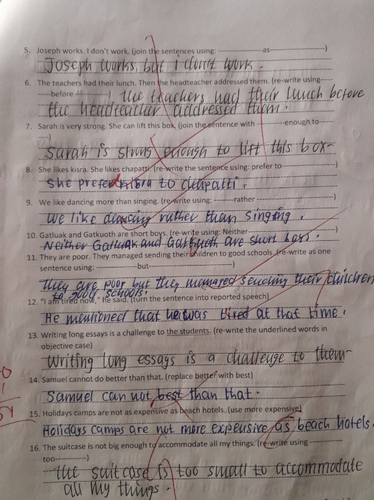 5. Joseph works. I don't work. (join the sentences using: ------------as------------------)
Joseph works, but I don't work.
6. The teachers had their lunch. Then the headteacher addressed them. (re-write using-----
-----before
the teachers had their lunch before
the headteacher addressed them.
7. Sarah is very strong. She can lift this box. (join the sentence with ------------enough to-----
-----)
Sarah is strong enough to lift this box-
8. She likes kisra. She likes chapatti. (re-write the sentence using: prefer to------------------)
She prefer kisra to chapatti.
9. We like dancing more than singing. (re-write using: ------rather------------------)
We like dancing rather than singing.
10. Gatluak and Gatkuoth are short boys. (re-write using: Neither------------------)
Neither Gatluak and Gatkuoth are short boys.
11. They are poor. They managed sending their children to good schools. (re-write as one
sentence using: ------------but------------------)
They are poor but they managed sending their children
to good schools.
12. "I am tired now," He said. (turn the sentence into reported speech)
He mentioned that he was tired at that time.
13. Writing long essays is a challenge to the students. (re-write the underlined words in
objective case)
Writing long essays is a challenge to them-
14. Samuel cannot do better than that. (replace better with best)
Samuel can not best than that.
15. Holidays camps are not as expensive as beach hotels. (use more expensive)
Holidays camps are not more expensive as beach hotels.
16. The suitcase is not big enough to accommodate all my things. (re-write using ------------
too------------------)
the suitcase is too small to accommodate
all my things.